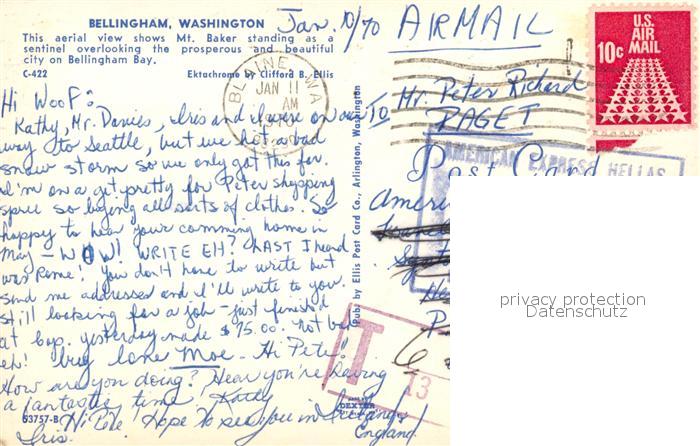 BELLINGHAM, WASHINGTON
This aerial view shows Mt. Baker standing as a
sentinel overlooking the prosperous and beautiful
city on Bellingham Bay.
C-422
Ektachrome by Clifford B. Ellis
Jan. 10/70
AIRMAIL
U.S.
AIR
MAIL
10c
BLAINE, WA
JAN 11
AM
Hi Woof:
Kathy, Mr. Davies, Iris and I were on our
way to Seattle, but we hit a bad
snow storm so we only got this far.
I'm on a get pretty for Peter shopping
spree so buying all sorts of clothes. So
happy to hear your comming home in
May - WOW! WRITE EH? LAST I heard
was Rome! You don't have to write but
send me addresses and I'll write to you.
Still looking for a job - just finished
at Bay. yesterday made $75.00. Not bad
eh! love Moe. Hi Pete!
How are you doing? Hear you're having
a fantastic time Kathy
Hi Hope to see you in
England.
Iris.
53757-B
DEXTER
Pub. by Ellis Post Card Co., Arlington, Washington
TO Mr. Peter Richard
PAGET
Post Card
AMERICAN EXPRESS HELLAS
Ameri
T
13
6
privacy protection
Datenschutz